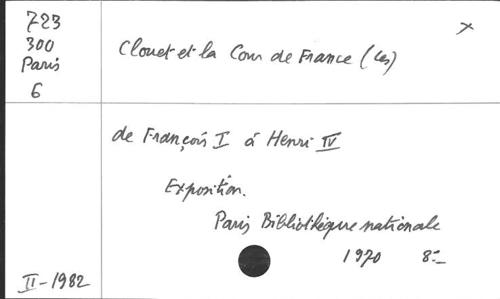 723
300
Paris
6
x
Clouet et la Cour de France (Les)
de François I à Henri IV
Exposition.
Paris Bibliothèque nationale
1970 8°
II-1982